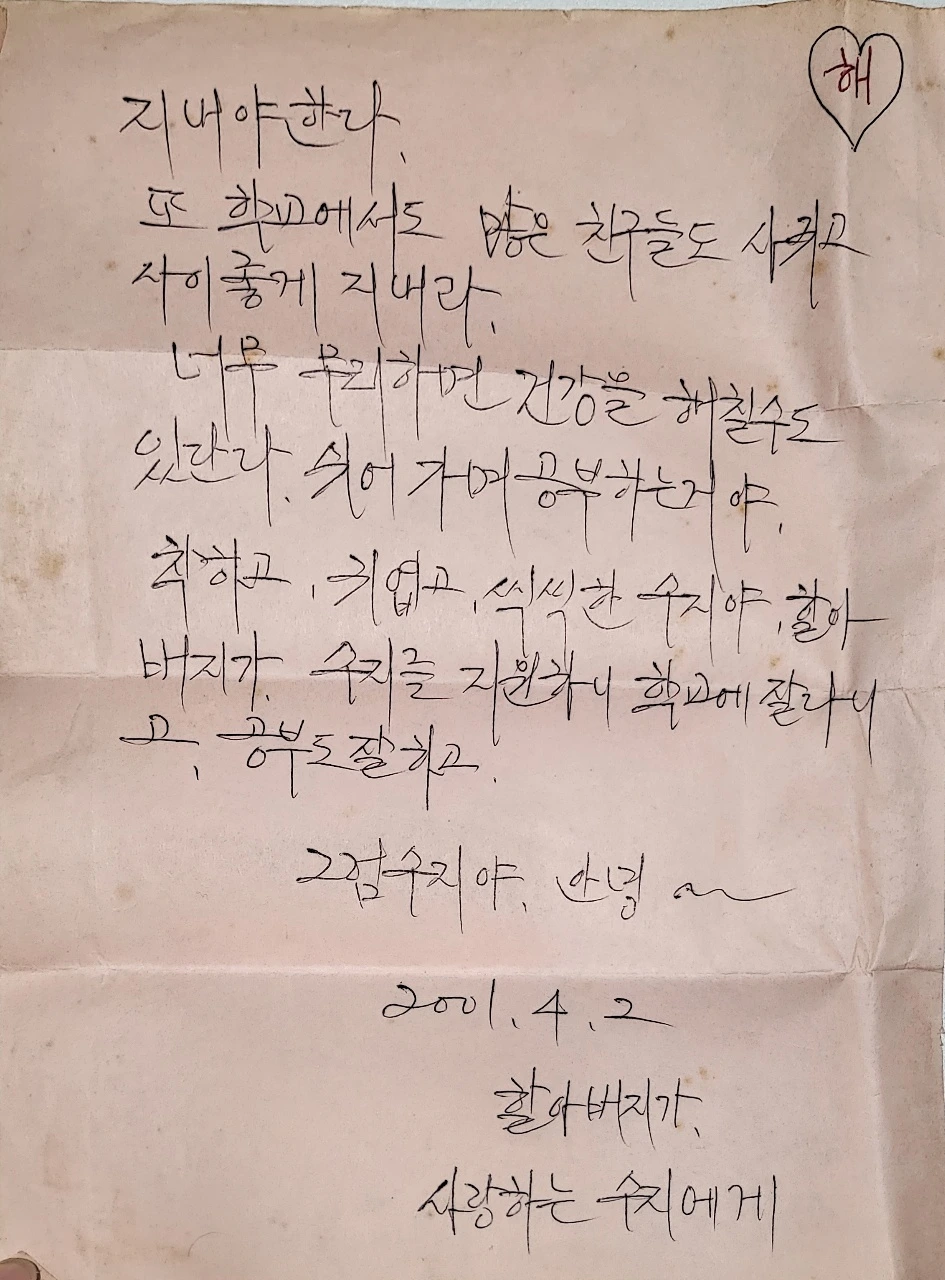 해
지내야한다.
또 학교에서도 많은 친구들도 사귀고
사이좋게 지내라.
너무 무리하면 건강을 해칠수도
있단다. 쉬어 가며 공부하는거야.
착하고, 귀엽고, 씩씩한 수지야, 할아
버지가, 수지를 지원하니 학교에 잘다니
고, 공부도 잘하고.
그럼 수지야, 안녕 ~
2001. 4. 2
할아버지가,
사랑하는 수지에게